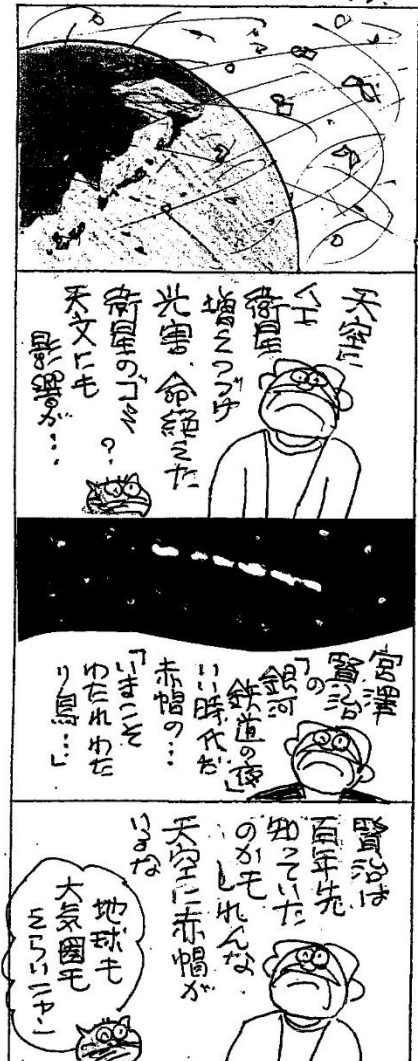 天空に
人工
衛星
増えつづけ
光害、命絶えた
衛星のゴミ?
天文にも
影響が…
宮澤
賢治
の
「銀河
鉄道の夜」
いい時代だ
赤帽の…
「いまこそ
わたれわた
り鳥…」
賢治は
百年先
知っていた
のかも
しれんな
天空に赤帽が
いるな
地球も
大気圏も
せまいニャン